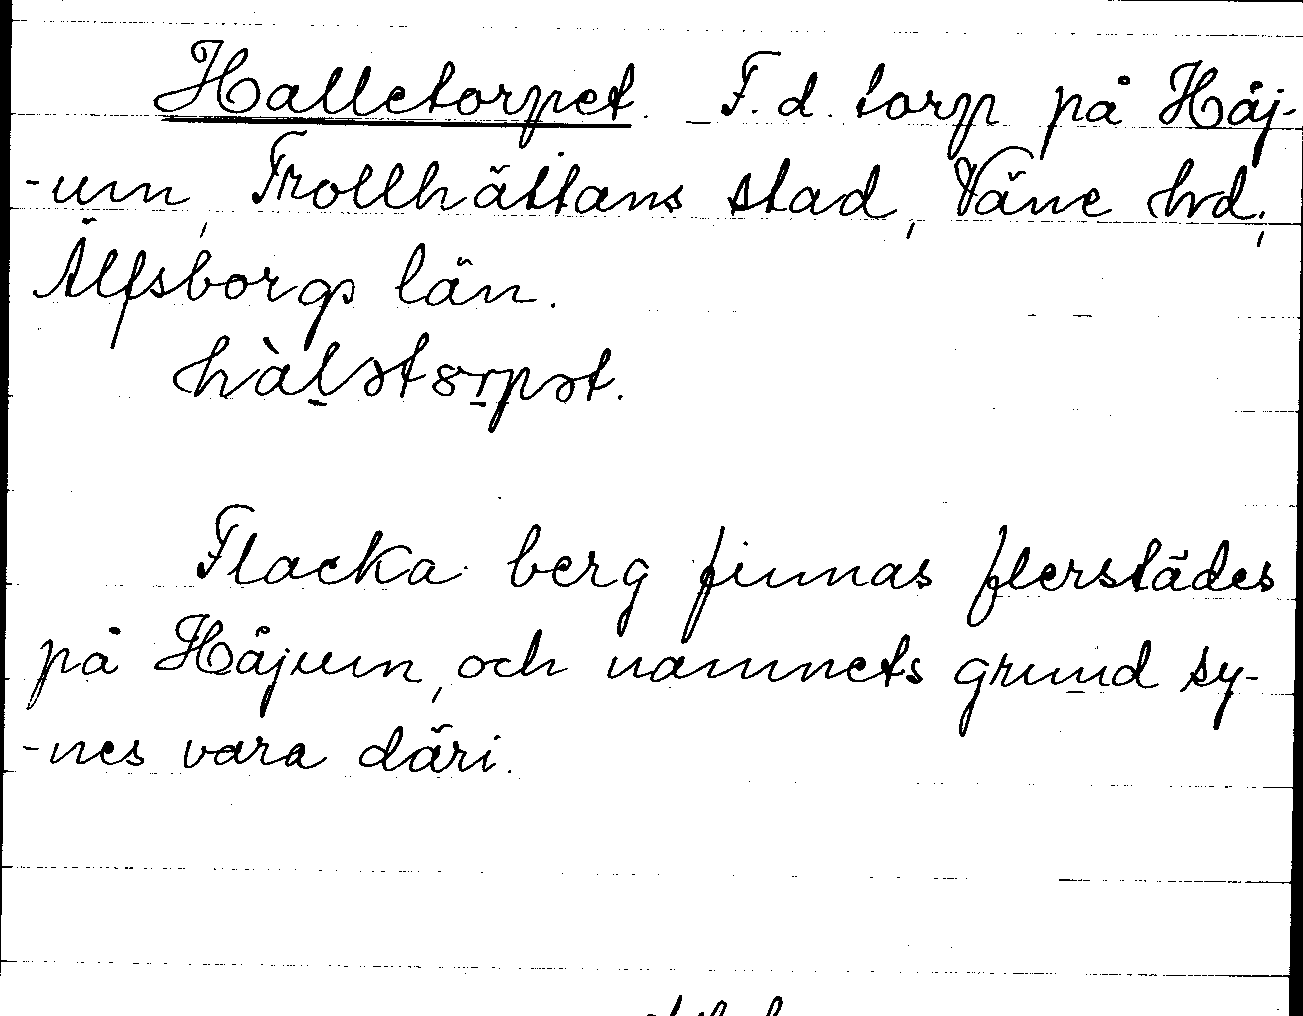 Halletorpet. F. d. torp på Håj-
-um, Trollhättans stad, Väne hrd.,
Älfsborgs län.
hàl̠ətɞr̠pət.
Flacka berg finnas flerstädes
på Håjum, och namnets grund sy-
-nes vara däri.